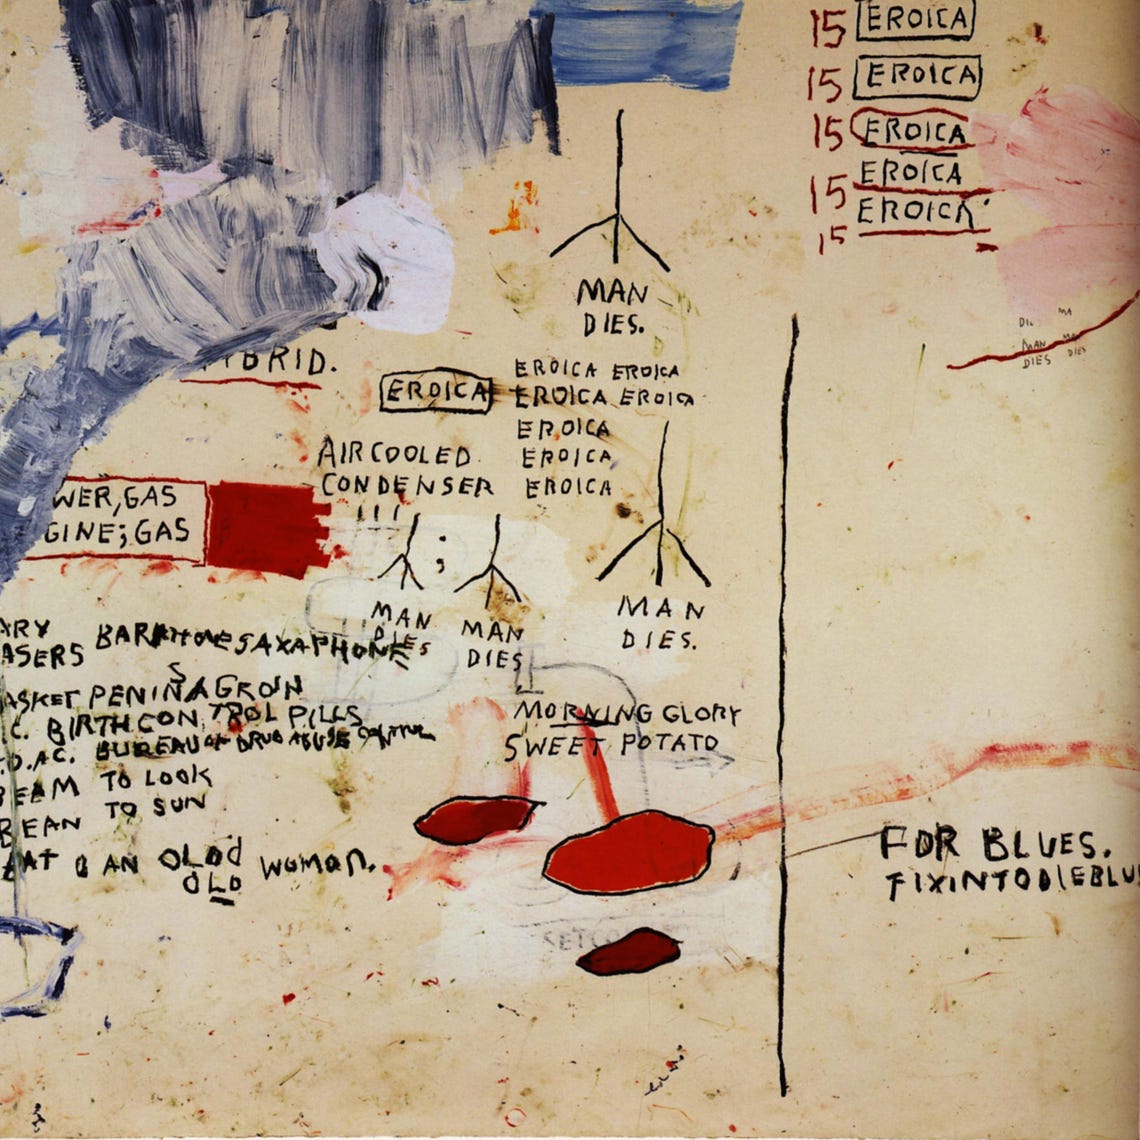 15 EROICA
15 EROICA
15 EROICA
15 EROICA
15 EROICA
15
MAN
DIES.
MAN
DIES
EROICA
EROICA EROICA
EROICA EROICA
EROICA
EROICA
EROICA
AIR COOLED
CONDENSER
GAS
GAS
MAN
DIES
MAN
DIES
MAN
DIES.
BARITONE SAXAPHONE
PEN IN A GROIN
BIRTH CONTROL PILLS
BUREAU OF DRUG ABUSE CONTROL
TO LOOK
TO SUN
AN OLD WOMAN.
OLD
MORNING GLORY
SWEET POTATO
FOR BLUES.
FIXINTODIEBLU